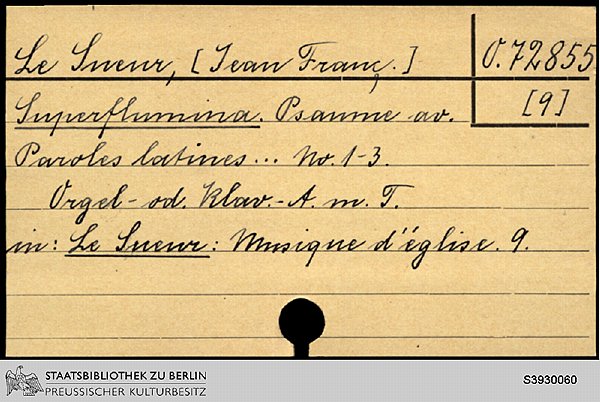 Le Sueur, [Jean Franç.]
O.72855
[9]
Superflumina. Psaume av.
Paroles latines... No. 1-3.
Orgel- od. Klav.-A. m. T.
in: Le Sueur: Musique d'église. 9.
STAATSBIBLIOTHEK ZU BERLIN
PREUSSISCHER KULTURBESITZ
S3930060